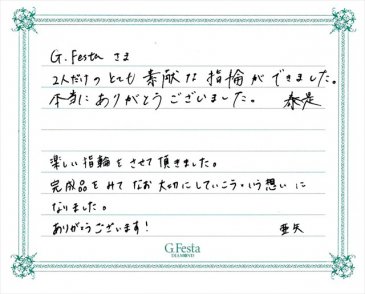 G.Festa さま
2人だけのとても素敵な指輪ができました。
本当にありがとうございました。 泰是
楽しい指輪をさせて頂きました。
完成品をみてなお大切にしていこういう想いに
なりました。
ありがとうございます! 亜矢
G.Festa
DIAMOND